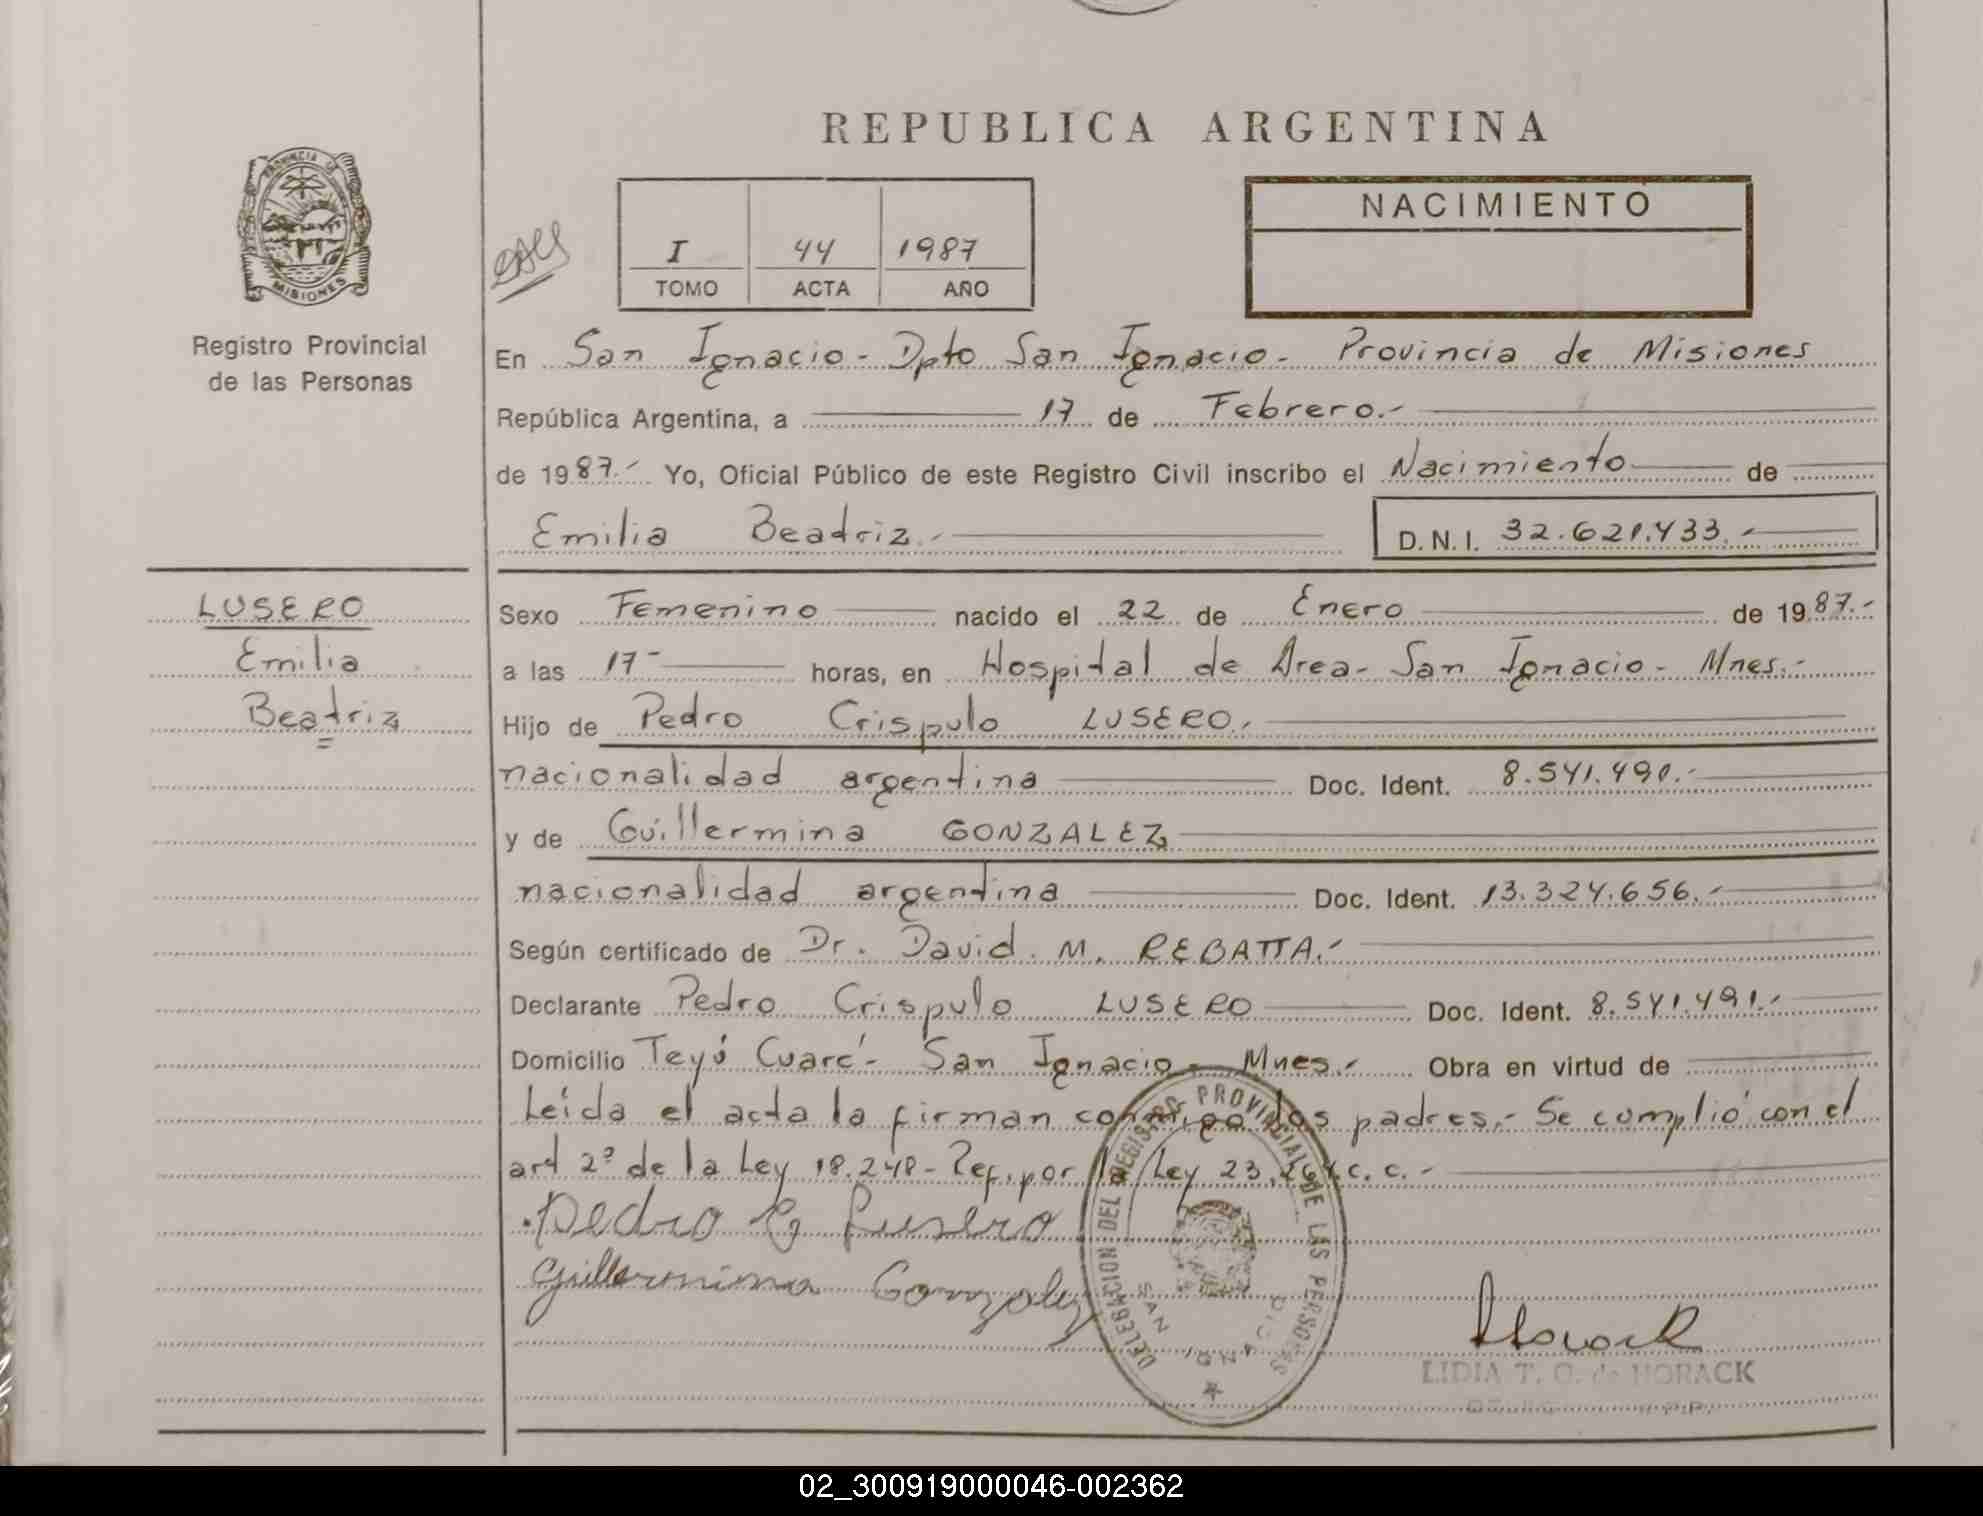 REPUBLICA ARGENTINA
PROVINCIA DE
MISIONES
Registro Provincial
de las Personas
I 44 1987
TOMO ACTA AÑO
NACIMIENTO
En San Ignacio - Dpto San Ignacio - Provincia de Misiones
República Argentina, a 17 de Febrero.-
de 1987.- Yo, Oficial Público de este Registro Civil inscribo el Nacimiento de
Emilia Beatriz.- D.N.I. 32.621.433.-
LUSERO
Emilia
Beatriz
Sexo Femenino nacido el 22 de Enero de 1987.-
a las 17- horas, en Hospital de Area - San Ignacio - Mnes.-
Hijo de Pedro Crispulo LUSERO.
nacionalidad argentina Doc. Ident. 8.541.491.-
y de Guillermina GONZALEZ
nacionalidad argentina Doc. Ident. 13.324.656.-
Según certificado de Dr. David M. REBATTA.-
Declarante Pedro Crispulo LUSERO Doc. Ident. 8.541.491.-
Domicilio Teyú Cuaré - San Ignacio - Mnes.- Obra en virtud de
Leída el acta la firman conmigo los padres.- Se cumplió con el
art 2º de la Ley 18.248 - Ref. por la Ley 23.264.c.c.-
Pedro C Lusero
Guillermina Gonzalez
DELEGACION DEL REGISTRO PROVINCIAL DE LAS PERSONAS
SAN IGNACIO
Horack
LIDIA T. O. de HORACK
02_300919000046-002362